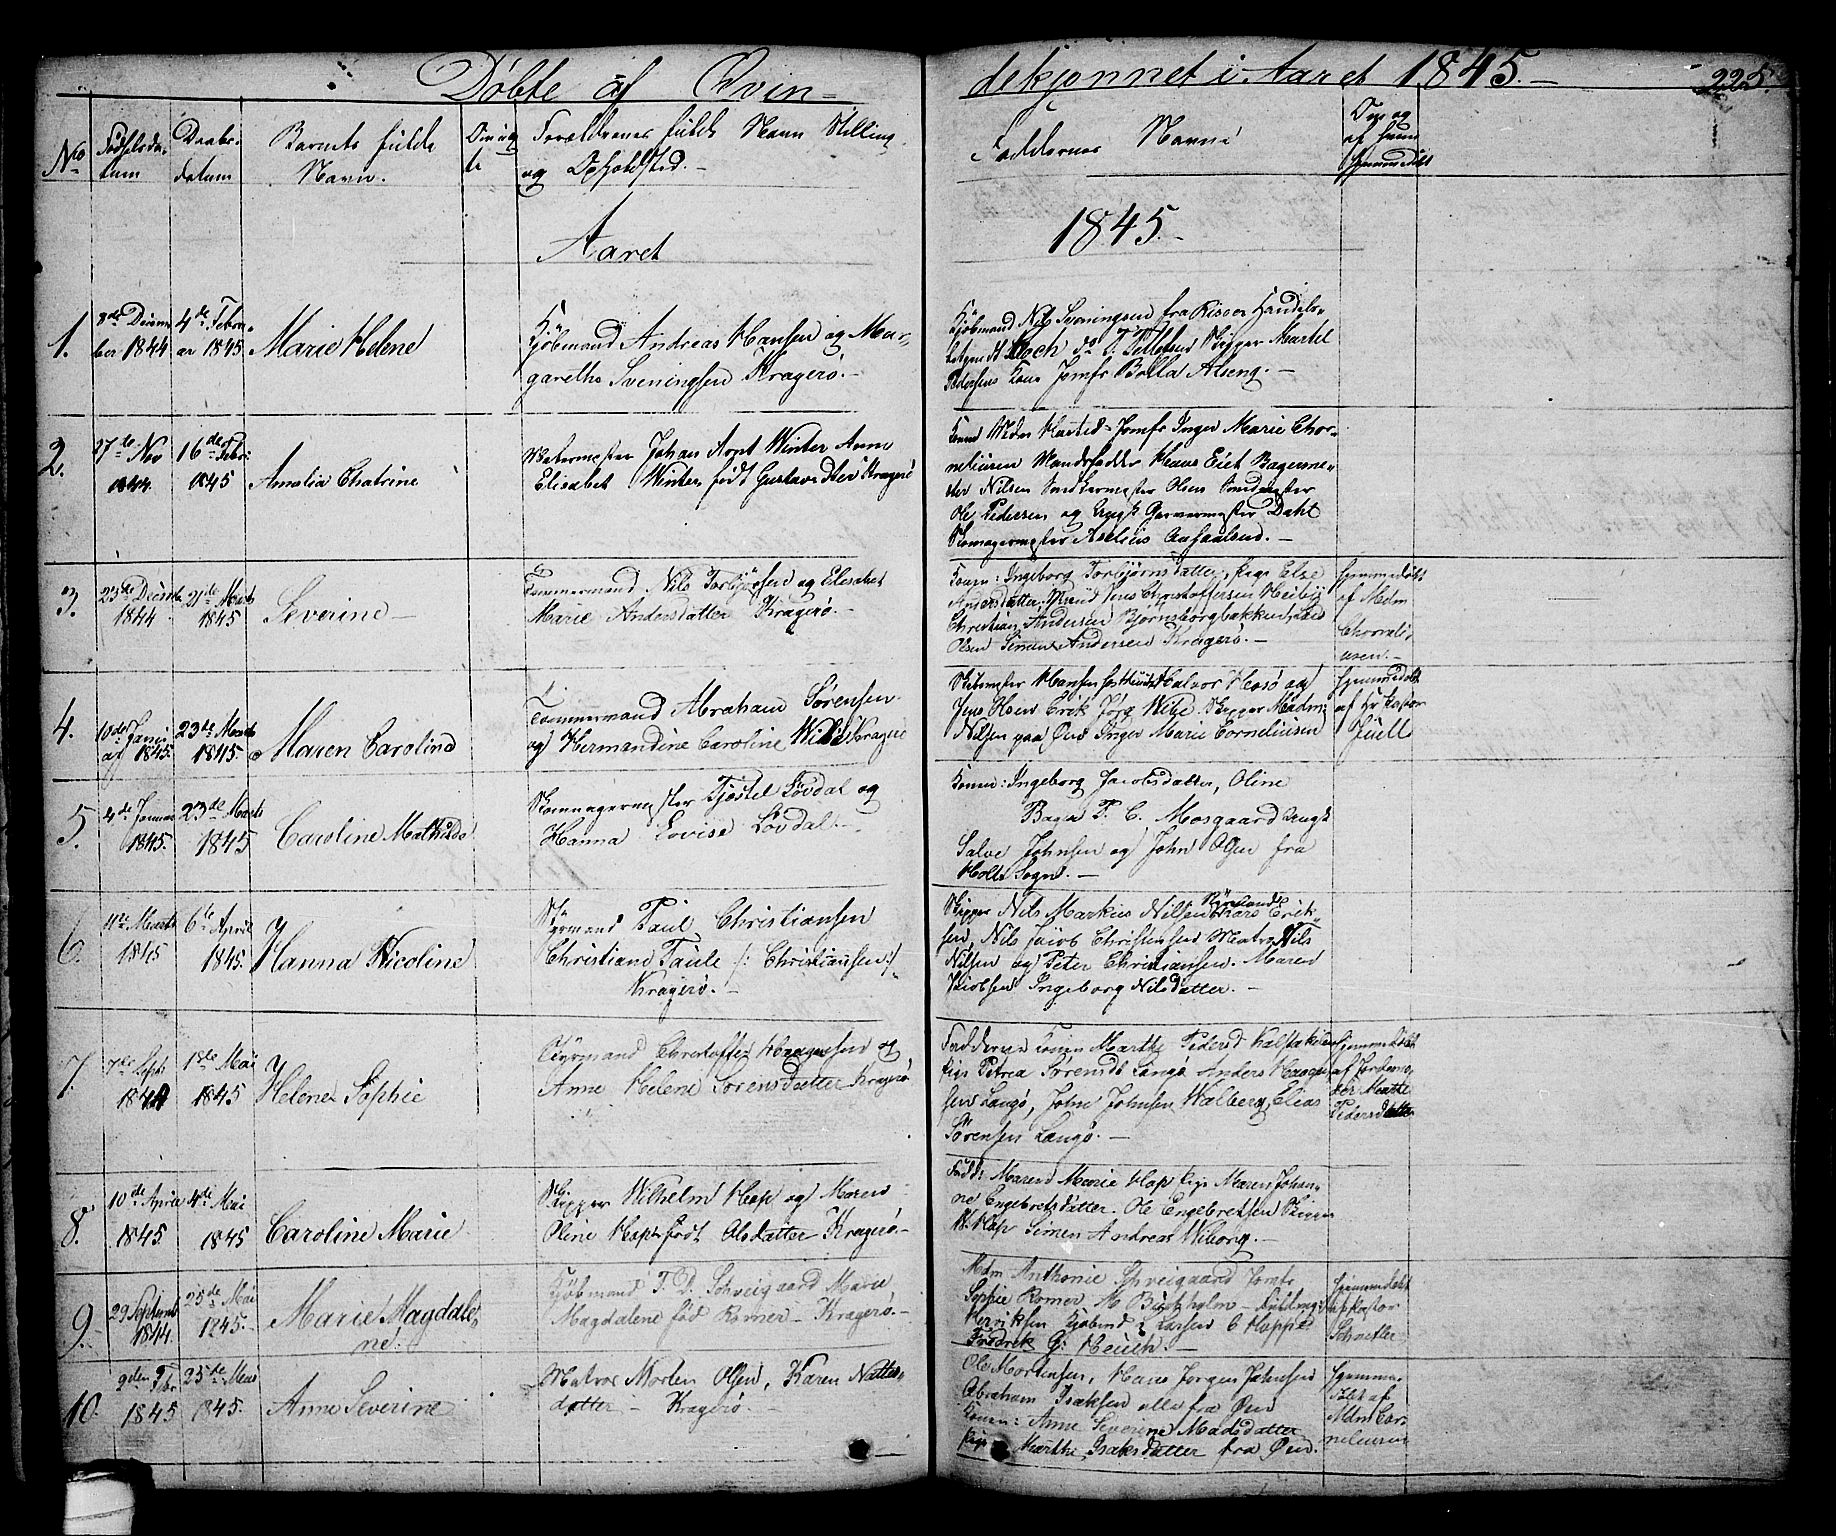 Døbte af Qvin-
dekjønnet i Aaret 1845.-
225.
No
Fødselsda-
tum
Daabs-
datum
Barnets fulde
Navn.
Forældrenes fulde Navn Stilling
og Opholdsted.-
Faddernes Navne
af hvem
hjemmedøbt
Aaret
1845.-
1.
8de Decem-
ber 1844
4de Febru-
ar 1845
Marie Helene
Kjøbmand Andreas Hansen og Mar-
garethe Sveningsen Kragerø.-
Kjøbmand Nils Sveningsen fra Risøer Handels-
Koch do Skipper
Pedersens Kone Jomfr
2.
27de Nov
1844
16de Febr:
1845
Amalia Chatrine
Johan Arnt Winter Anne
Elisabet Winter født Gustavsdtter Kragerø
Jomfr Inger Marie Cor-
neliusen Hans Bagerme-
ster Nilsen Olsen
Ole Pedersen og Garvermester Dahl
Skomagermester
3.
23de Decemb
1844
21de Marts
1845
Severine -
Tømmermand Nils Torbjørnsen og Elisabet
Marie Andersdatter Kragerø.-
Konen: Ingeborg Torbjørnsdatter, Pige Else
Andersdatter, Jens Christoffersen
Christian Andersen Bjørnsborgbakken,
Olsen Simon Andersen Kragerø.-
hjemmedøbt
af Mdm
Corneli-
usen.-
4.
10de Janu
ar 1845
23de Marts
1845.
Maren Caroline
Tømmermand Abraham Sørensen
og Hermandine Caroline Kragerø
Hansen Halvor og
Jens Erik Skipper Madm:
Nilsen paa Øen Inger Marie Corneliusen
hjemmedøbt
af Hr Pastor
Juell
5.
4de Januar
1845.
23de Marts
1845
Caroline Mathilde
Skomagermester Tjøstel Løvdal og
Hanna Lovise Løvdal.-
Konen: Ingeborg Jacobsdatter, Oline
Bager P. C. Mosgaard
Salve Johnsen og John Olsen fra
Holts Sogn.-
6.
Marts
1845
6te April
1845.
Hanna Nicoline
Styrmand Paul Christiansen
Christiane Paule /: Christiansen:/
Kragerø.-
Skipper Nils Markus Nilsen Lars Erik-
sen, Nils Jacob Christensen Matros Nils
Nilsen og Peter Christiansen. Maren
Jacobsen Ingeborg Nilsdatter.-
7.
7de Sept
1844
1ste Mai
1845
Helene Sophie
Styrmand Christoffer Haagensen og
Anne Helene Sørensdatter Kragerø
Fadderne Konen Marthe Pedersd
Pige Petrea Sørensd Langø Anders Haagen-
sen Langø, John Johnsen Walberg, Elias
Sørensen Langø.-
hjemmedøbt
af Jordemo-
der Marthe
Pedersdatter
8.
10de April
1845.
4de Mai
1845
Caroline Marie
Skipper Wilhelm Hop og Maren
Oline Hop født Olsdatter Kragerø.-
Fadd: Maren Marie Hop Pige Maren Johan-
ne Engebretsdatter. Ole Engebretsen Skipper
W. Hop Simon Andreas Wiborg.-
9.
29 Septemb
1844
25de Mai
1845.-
Marie Magdale-
ne.
Kjøbmand T. D. Schveigaard Marie
Magdalene fød Rømer - Kragerø.-
Mdm Anthonie Schveigaard Jomfr
Sophie Rømer M. Buchholm -
Henriksen Kjøbmd Larsen C Hoppe
Fredrek G: Heuch.-
hjemmedøbt
af Pastor
10.
9den Febr
1845
25de Mai
1845.
Anne Severine
Matros Morten Olsen, Karen
datter - Kragerø.-
Ole Mortensen, Hans Jørgen Johnsen
Abraham Isaksen alle fra Øen
Konen: Anne Severine Madsdatter
Pige Marthe Isaksdatter fra Øen.
hjemme-
døbt af
Mdm Cor-
neliusen